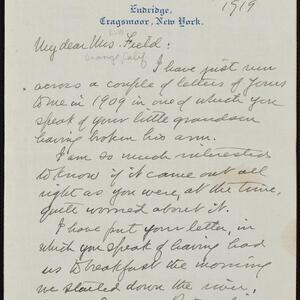 Endridge,
Cragsmoor, New York.
1919
My dear Mrs. Field:
Orange, Calif
I have just run
across a couple of letters of yours
to me in 1909 in one of which you
speak of your little grandson
having broken his arm.
I am so much interested
to know if it came out all
right as you were, at the time,
quite worried about it.
I have put your letter, in
which you speak of having had
us to breakfast the morning
we started down the river,